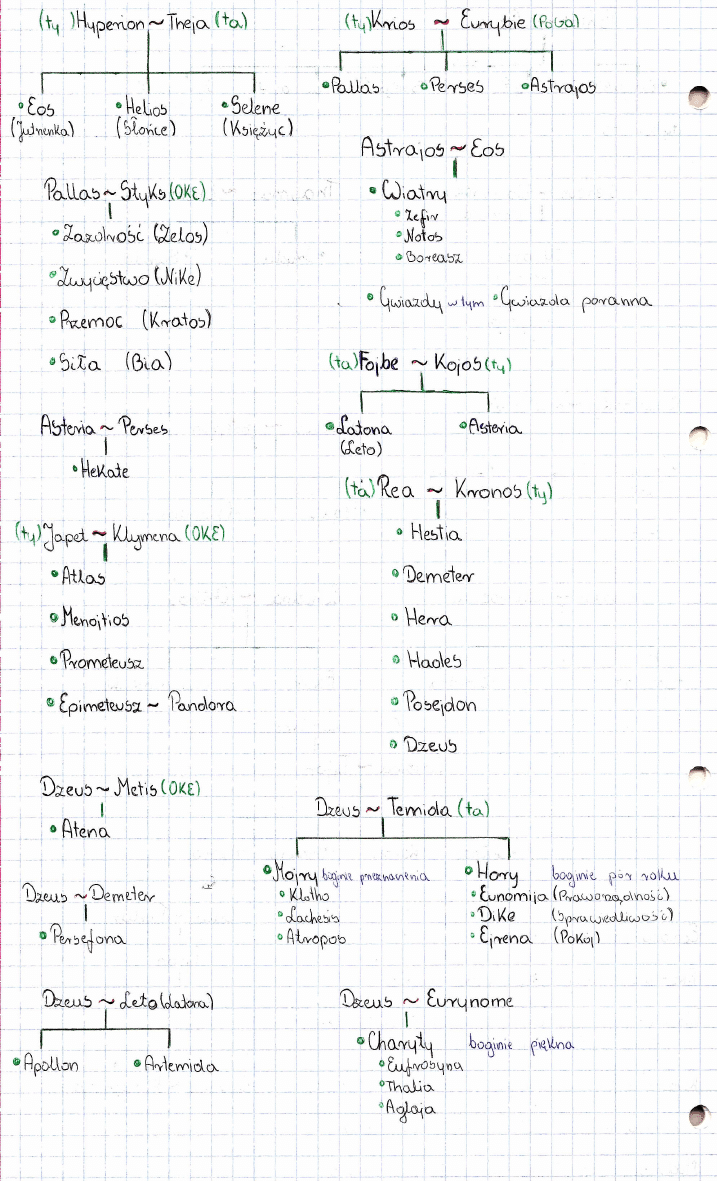 (ty) Hyperion ~ Theja (ta)
• Eos • Helios • Selene
(Jutrzenka) (Słońce) (Księżyc)
(ty) Krios ~ Eurybie (PoGa)
• Pallas • Perses • Astrajos
Pallas ~ Styks (OKE)
• Zazdrość (Zelos)
• Zwycięstwo (Nike)
• Przemoc (Kratos)
• Siła (Bia)
Astrajos ~ Eos
• Wiatry
• Zefir
• Notos
• Boreasz
• Gwiazdy w tym • Gwiazda poranna
Asteria ~ Perses
• Hekate
(ta) Fojbe ~ Kojos (ty)
• Latona • Asteria
(Leto)
(ty) Japet ~ Klymena (OKE)
• Atlas
• Menojtios
• Prometeusz
• Epimeteusz ~ Pandora
(ta) Rea ~ Kronos (ty)
• Hestia
• Demeter
• Hera
• Hades
• Posejdon
• Dzeus
Dzeus ~ Metis (OKE)
• Atena
Dzeus ~ Temida (ta)
• Mojry boginie przeznaczenia
• Klotho
• Lachesis
• Atropos
• Hory boginie pór roku
• Eunomija (Praworządność)
• Dike (Sprawiedliwość)
• Ejrena (Pokój)
Dzeus ~ Demeter
• Persefona
Dzeus ~ Leto (Latona)
• Apollon • Artemida
Dzeus ~ Eurynome
• Charyty boginie piękna
• Eufrosyna
• Thalia
• Aglaja